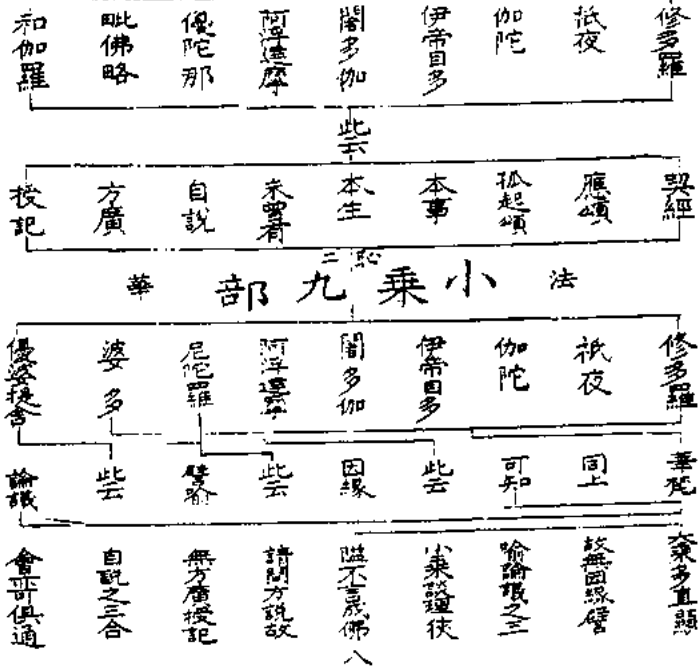 修多羅
祇夜
伽陀
伊帝目多
闍多伽
阿浮達摩
優陀那
毗佛略
和伽羅
此云
契經
應頌
孤起頌
本事
本生
未曾有
自說
方廣
授記
二
法
小乘九部
華
修多羅
祇夜
伽陀
伊帝目多
闍多伽
阿浮達摩
尼陀羅
婆多
優婆提舍
華梵
同上
可知
此云
因緣
此云
譬喻
此云
論議
大乘多直顯
故無因緣譬
喻論議之三
小乘談理狹
隘不言成佛八
請問方說故
無方廣授記
自說之三合
會亦可俱通